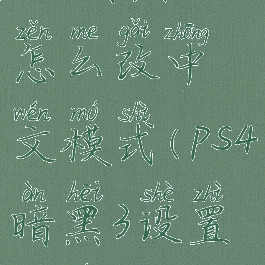 zěn me gǎi zhōng
怎么改中
wén mó shì
文模式(PS4
àn hēi shè zhì
暗黑3设置